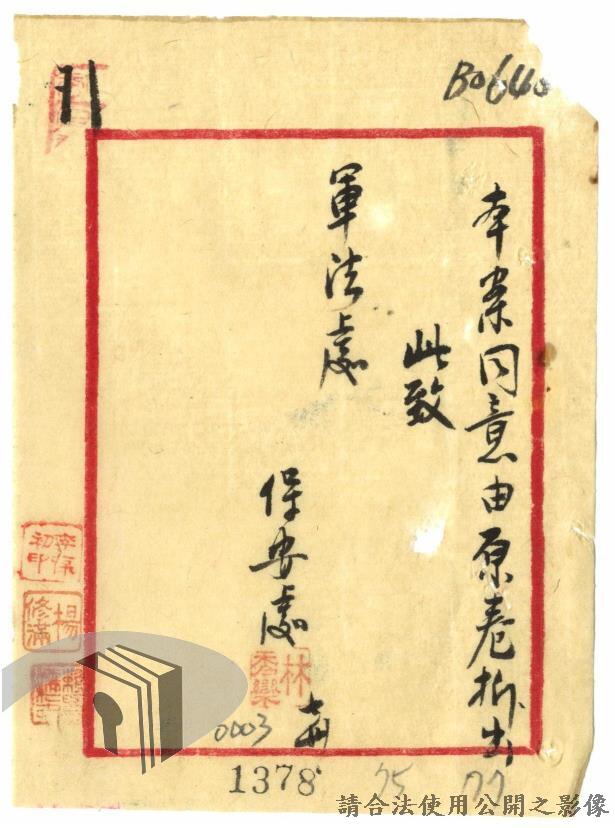 B0640
71
本案同意由原卷拆出
此致
軍法處
保安處
林
秀欒
楊
修滿
0003
1378
75
77
請合法使用公開之影像